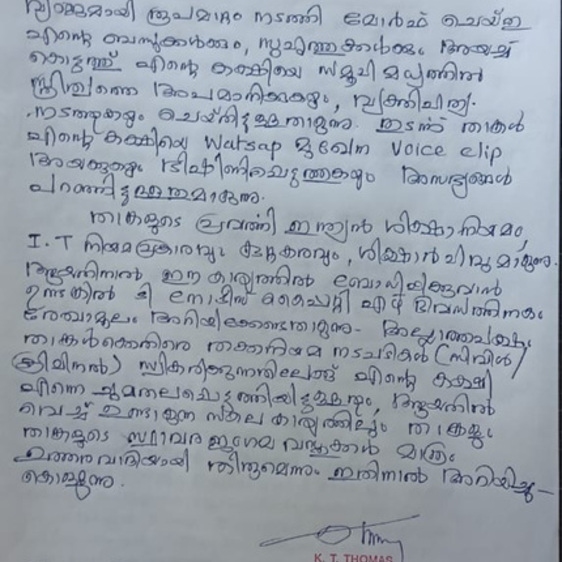 വ്യക്തമായി രൂപമാറ്റം നടത്തി മോർഫ് ചെയ്ത്
എന്റെ ബന്ധുക്കൾക്കും, സുഹൃത്തുക്കൾക്കും അയച്ച്
കൊടുത്ത് എന്റെ കക്ഷിയെ സമൂഹ മദ്ധ്യത്തിൽ
സ്ത്രീത്വത്തെ അപമാനിക്കുകയും, വ്യക്തിഹത്യ
നടത്തുകയും ചെയ്തിട്ടുള്ളതാകുന്നു. തുടർന്ന് താങ്കൾ
എന്റെ കക്ഷിയെ Watsap മുഖേന Voice clip
അയക്കുകയും ഭീഷണിപ്പെടുത്തുകയും അസഭ്യങ്ങൾ
പറഞ്ഞിട്ടുള്ളതുമാകുന്നു.
താങ്കളുടെ പ്രവർത്തി ഇന്ത്യൻ ശിക്ഷാ നിയമം,
I.T നിയമപ്രകാരവും കുറ്റകരവും, ശിക്ഷാർഹവുമാകുന്നു.
ആയതിനാൽ ഈ കാര്യത്തിൽ ബോധിപ്പിക്കുവാൻ
ഉണ്ടെങ്കിൽ ഈ നോട്ടീസ് കൈപ്പറ്റി ഏഴ് ദിവസത്തിനകം
രേഖാമൂലം അറിയിക്കേണ്ടതാകുന്നു. അല്ലാത്തപക്ഷം
താങ്കൾക്കെതിരെ തക്കനിയമ നടപടികൾ (സിവിൽ/
ക്രിമിനൽ) സ്വീകരിക്കുന്നതിലേക്ക് എന്റെ കക്ഷി
എന്നെ ചുമതലപ്പെടുത്തിയിട്ടുള്ളതും, ആയതിൽ
വെച്ച് ഉണ്ടാകുന്ന സകല കാര്യത്തിലും താങ്കളും
താങ്കളുടെ സ്ഥാവര ജംഗമ വസ്തുക്കൾ മാത്രം
ഉത്തരവാദിയായി തീരുമെന്നും ഇതിനാൽ അറിയിച്ചു-
കൊള്ളുന്നു.
K. T. THOMAS